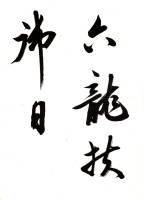 六龍扶
御日